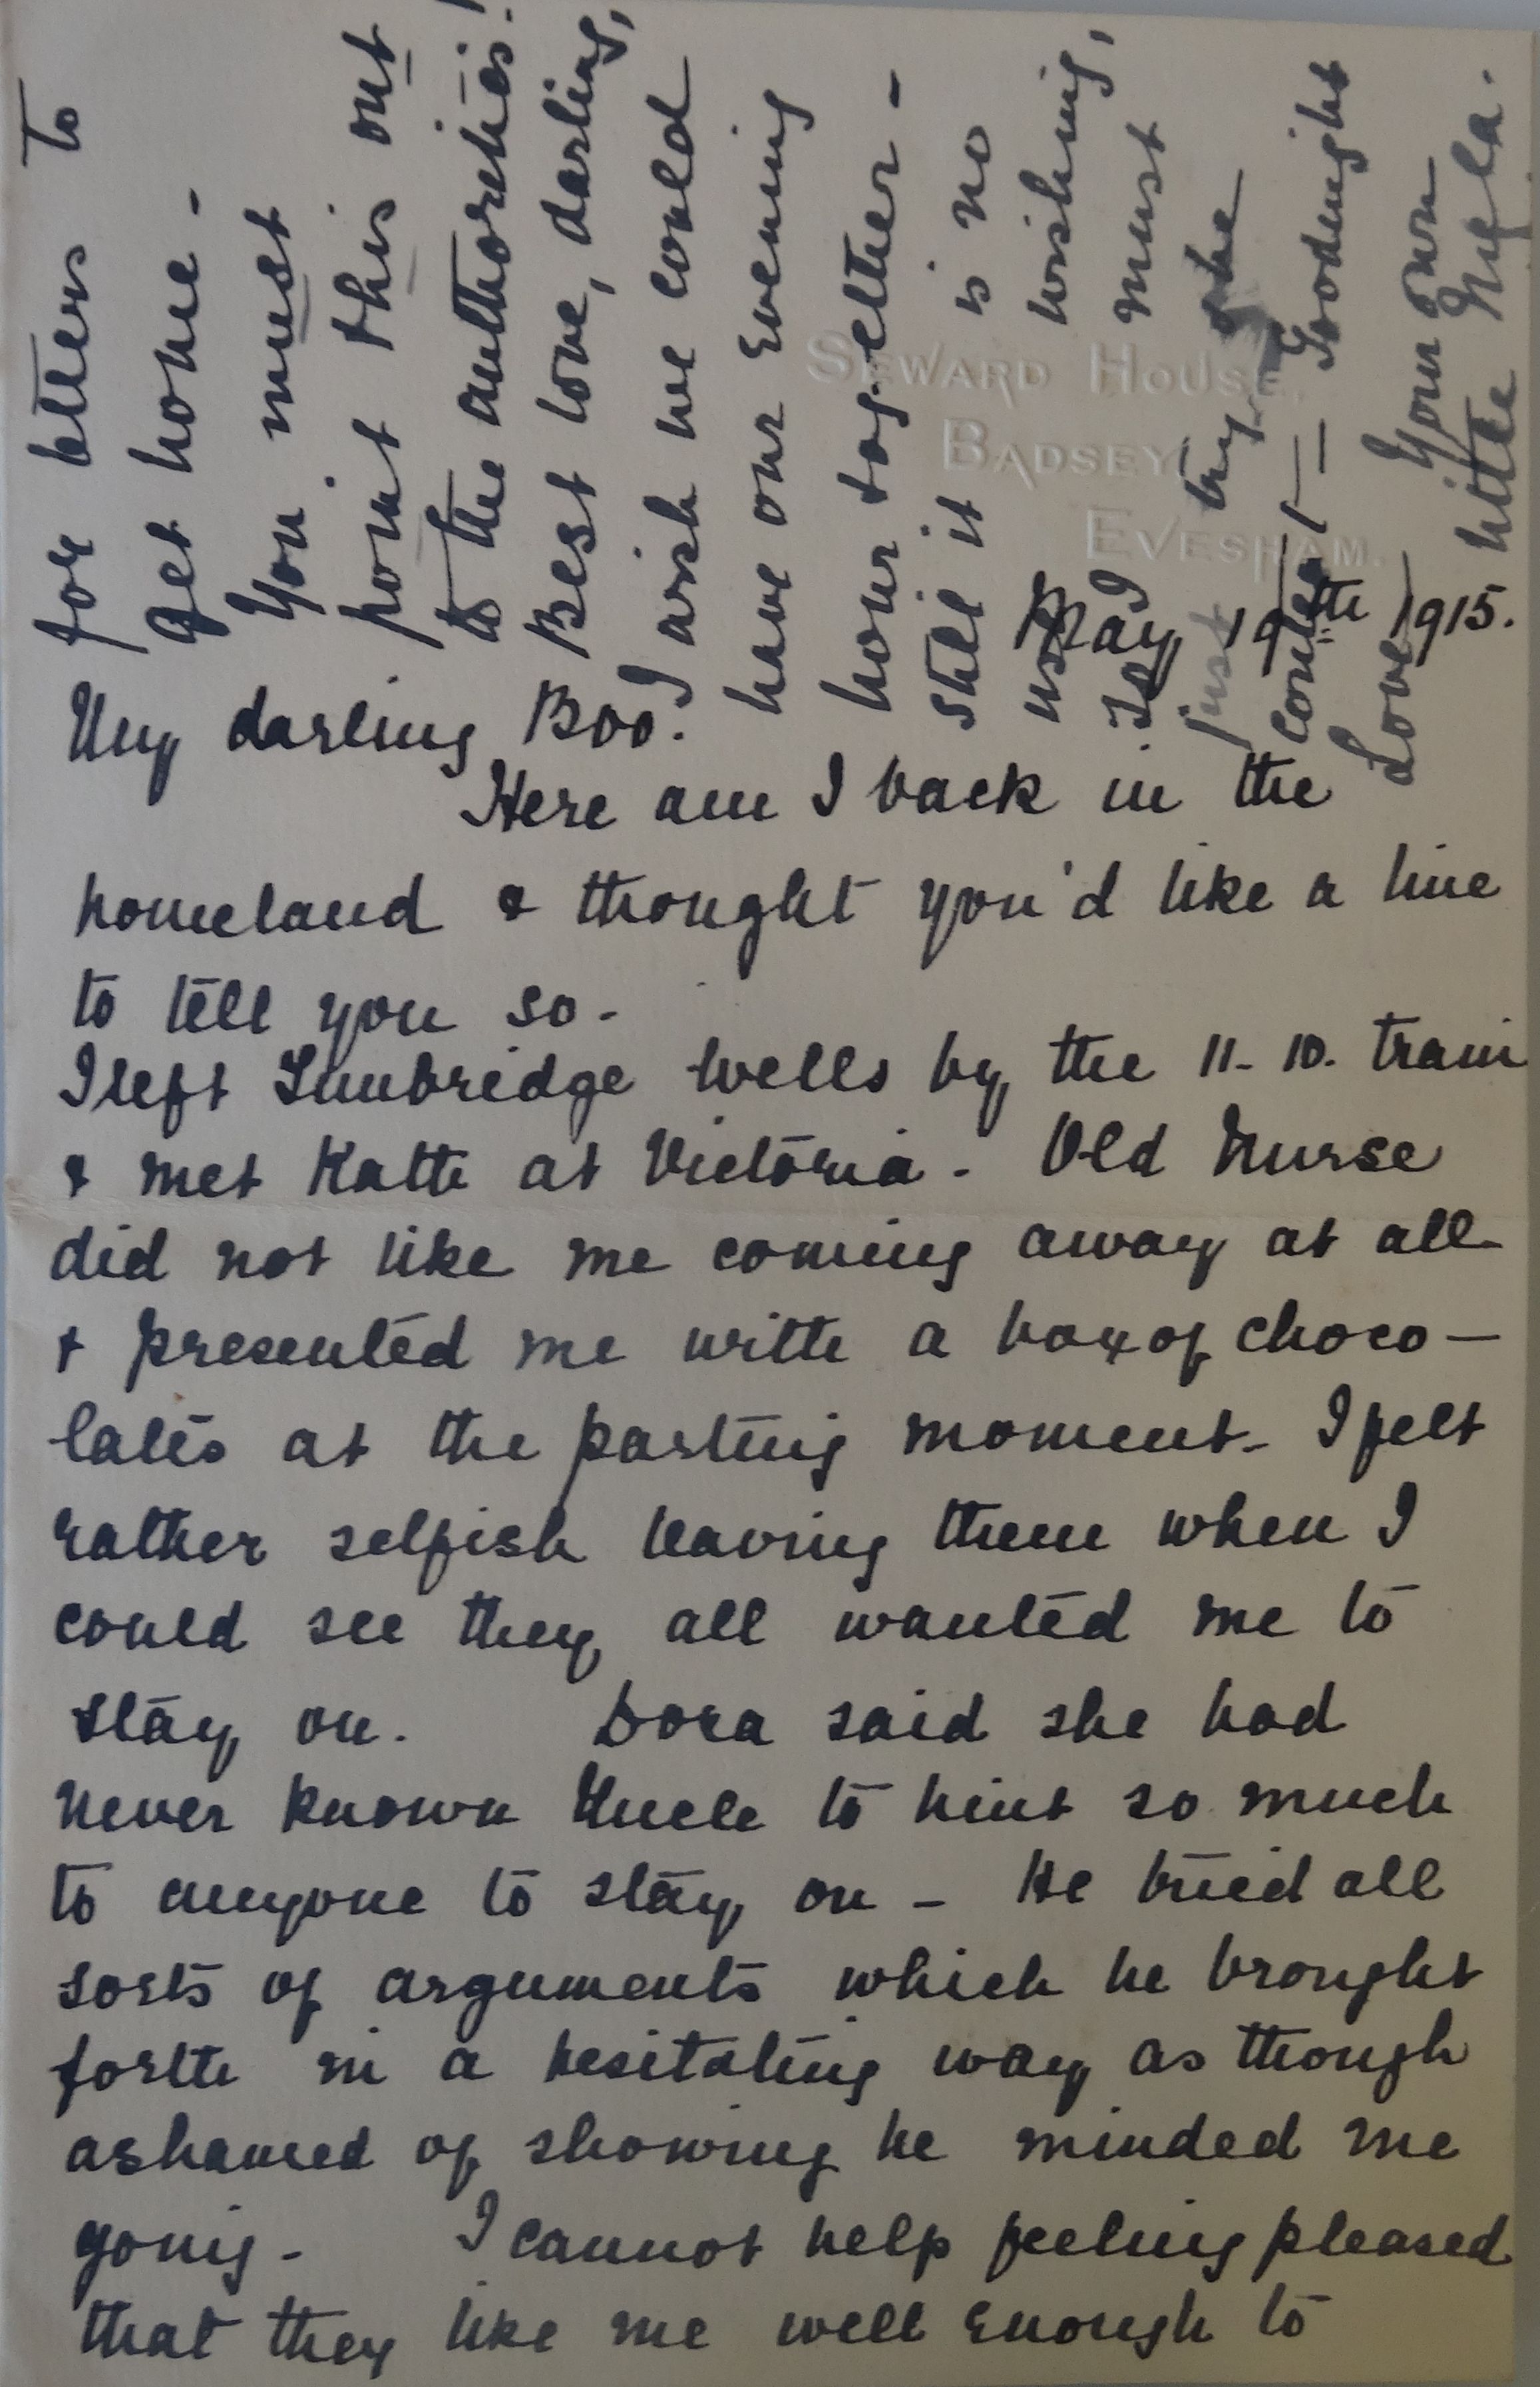 SEWARD HOUSE,
BADSEY,
EVESHAM.
May 19th 1915.
My darling Boo.
Here am I back in the
homeland & thought you'd like a line
to tell you so -
I left Tunbridge Wells by the 11-10. train
& met Katie at Victoria - Old Nurse
did not like me coming away at all
& presented me with a box of choco -
lates at the parting moment - I felt
rather selfish leaving them when I
could see they all wanted me to
stay on. Dora said she had
never known Uncle to hint so much
to anyone to stay on - He tried all
sorts of arguments which he brought
forth in a hesitating way as though
ashamed of showing he minded me
going - I cannot help feeling pleased
that they like me well enough to
for letters to
get home -
You must
point this out
to the authorities!
Best love, darling,
I wish we could
have our evening
hour together -
still it is no
use wishing,
I must
just try & be
content - Goodnight
Love Your own
little Nyla.